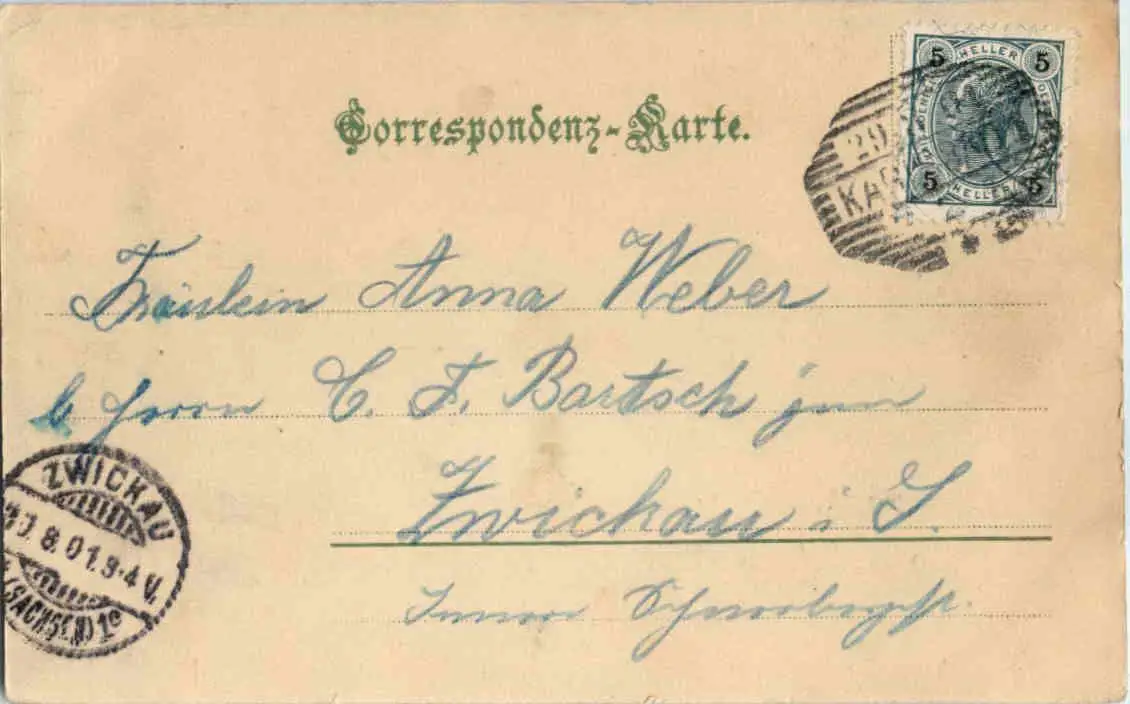 Correspondenz-Karte.
5 HELLER 5
5 HELLER 5
29
KAR
Fräulein Anna Weber
b. Herrn C. F. Bartsch jun
Zwickau i. S.
Innere Schneebergerst.
ZWICKAU
30.8.01.3-4 V.
(SACHSEN) 1c